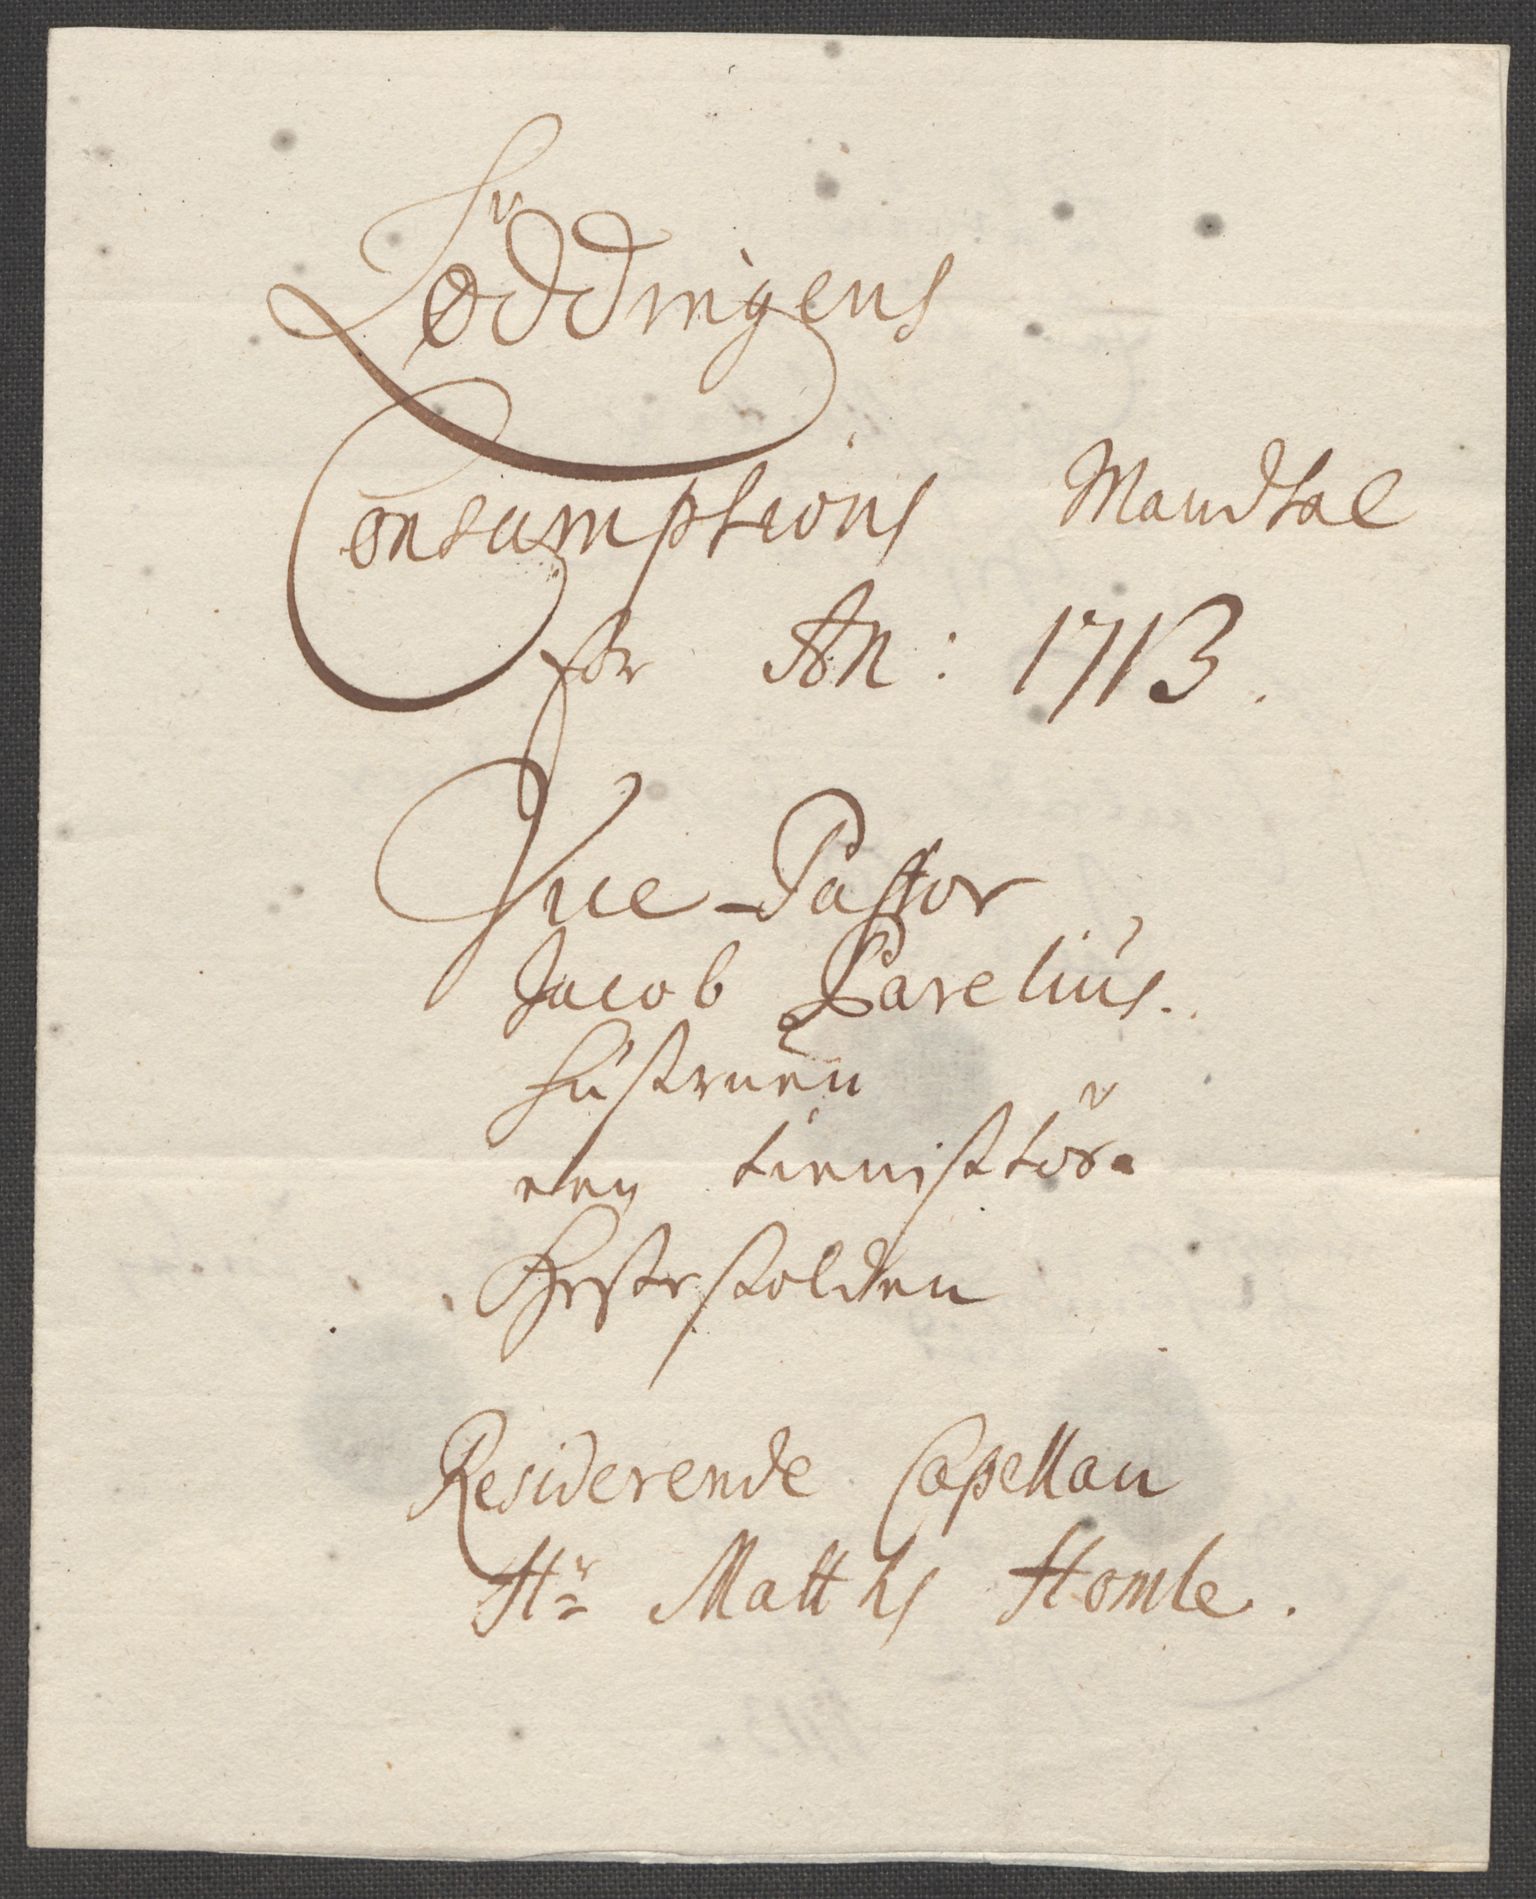 Löddingens
Consumptions Mandtal
for An: 1713.
Vice-Pastor
Jacob Parelius.
Hustruen
een tienisttös.
Gestestolden
Residerende Capellan
Hr Matths Homle.